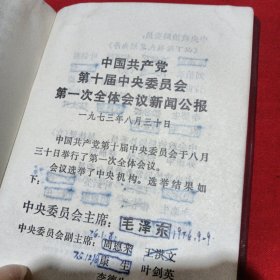 中国共产党
第十届中央委员会
第一次全体会议新闻公报
一九七三年八月三十日
中国共产党第十届中央委员会于八月
三十日举行了第一次全体会议。
会议选举了中央机构。选举结果如
下：
中央委员会主席：毛泽东 1976.9.9.
中央委员会副主席：周恩来 王洪文
康生 叶剑英
李德生